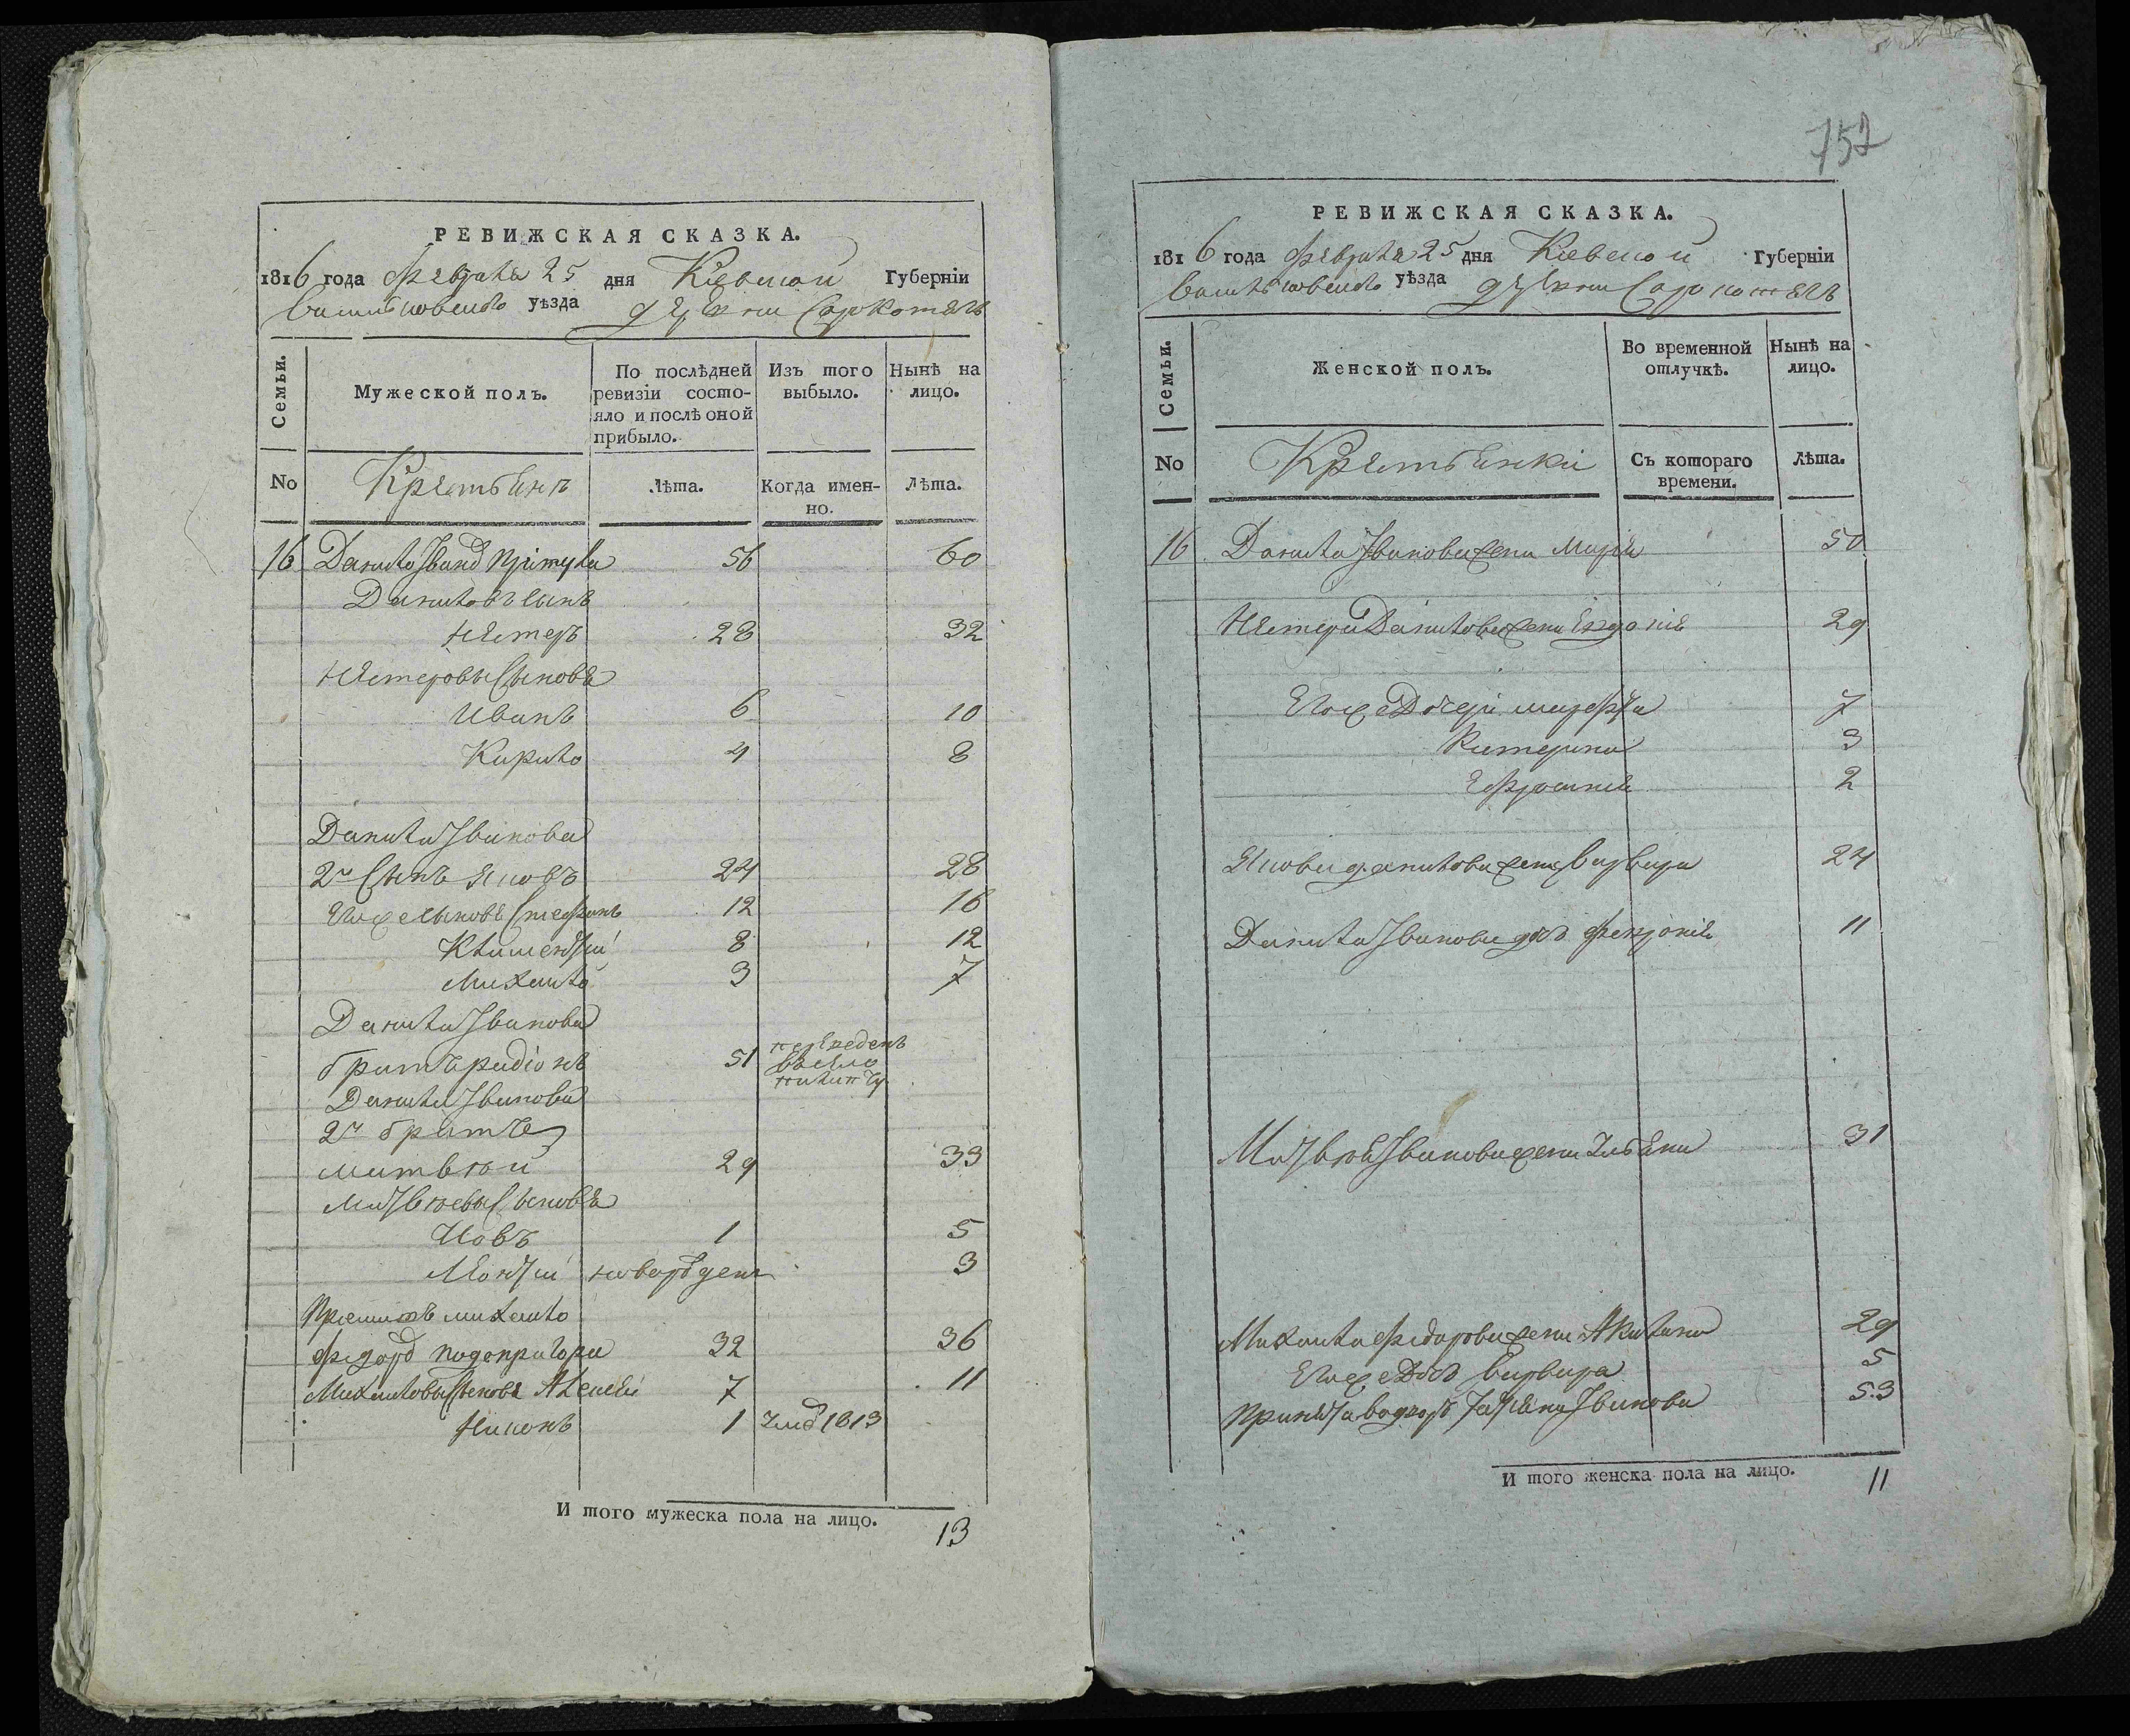 РЕВИЖСКАЯ СКАЗКА.
1816 года февраля 25 дня Киевской Губерніи
Васильковского уѣзда деревни Сорокотягъ
Семьи.
Мужеской полъ.
По послѣдней ревизіи состо-
яло и послѣ оной
прибыло.
Изъ того
выбыло.
Нынѣ на
лицо.
No
Крестьянъ
Лѣта.
Когда имен-
но.
Лѣта.
16 Данило Іванов Притула 56 60
Даниловъ сынъ
Нестеръ 28 32
Нестеровы Сынове
Иванъ 6 10
Кирило 4 8
Данила Іванова
2й Сынъ Яковъ 24 28
Егоже сынове Стефанъ 12 16
Климентій 8 12
Михаило 3 7
Данила Іванова
братъ радіонъ 51 переведенъ
в село
Данила Іванова
2й братъ
матвей 29 33
Матвеевы Сынове
Иовъ 1 5
Леонтій новорожден 3
Приемишъ михаило
федоров подопригора 32 36
Михаиловы Сынове Алексей 7 11
Никонъ 1 Умер 1813
И того мужеска пола на лицо. 13
752
РЕВИЖСКАЯ СКАЗКА.
1816 года февраля 25 дня Киевской Губерніи
Васильковского уѣзда деревни Сорокотягъ
Семьи.
Женской полъ.
Во временной
отлучкѣ.
Нынѣ на
лицо.
No
Крестьянки
Съ котораго
времени.
Лѣта.
16 Данила Іванова жена Марія 50
Нестера Данилова жена Евдокія 29
Егоже Дочери марфа 7
Катерина 3
Ефросинія 2
Якова данилова жена Варвара 24
Данила Іванова доч февронія 11
Матвея Іванова жена Ульяна 31
Михаила федорова жена Акилина 29
Егоже Доч Варвара 5
Татіяна Іванова 53
И того женска пола на лицо. 11